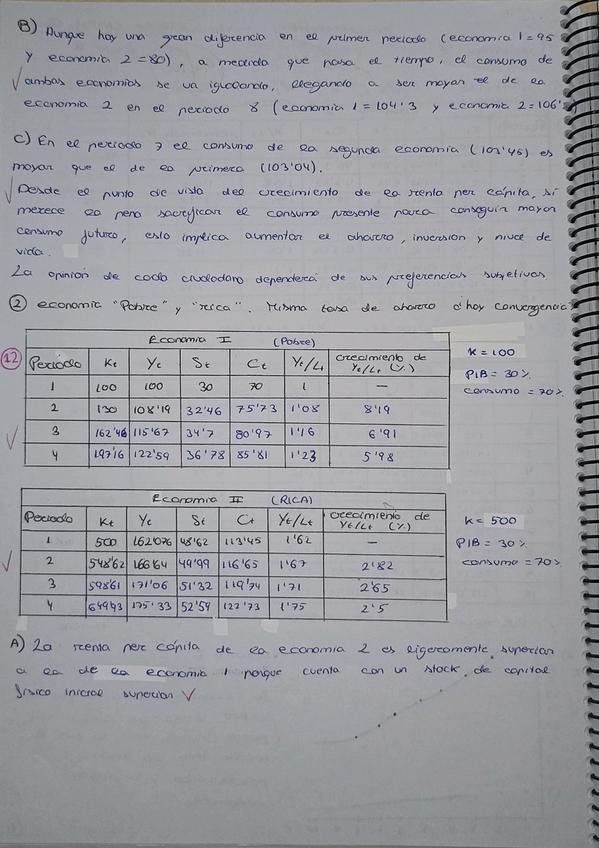 B) Aunque hay una gran diferencia en el primer periodo (economia 1=95
y economia 2=80), a medida que pasa el tiempo, el consumo de
ambas economías se va igualando, llegando a ser mayor el de la
economia 2 en el periodo 8 (economia 1=104'3 y economia 2=106'
C) En el periodo 7 el consumo de la segunda economía (103'45) es
mayor que el de la primera (103'04).
Desde el punto de vista del crecimiento de la renta per cápita, si
merece la pena sacrificar el consumo presente para conseguir mayor
consumo futuro, esto implica aumentar el ahorro, inversión y nivel de
vida.
La opinión de cada ciudadano dependerá de sus preferencias subjetivas
② economia "Pobre" y "rica". Misma tasa de ahorro ¿hay convergencia?
12
Economia I (Pobre)
Periodo Kt Yt St Ct Yt/Lt crecimiento de Yt/Lt (%)
1 100 100 30 70 1 —
2 130 108'19 32'46 75'73 1'08 8'19
3 162'46 115'67 34'7 80'97 1'16 6'91
4 197'16 122'59 36'78 85'81 1'23 5'98
K=100
PIB=30%
consumo=70%
Economia II (RICA)
Periodo Kt Yt St Ct Yt/Lt crecimiento de Yt/Lt (%)
1 500 162'076 48'62 113'45 1'62 —
2 548'62 166'64 49'99 116'65 1'67 2'82
3 598'61 171'06 51'32 119'74 1'71 2'65
4 649'93 175'33 52'59 122'73 1'75 2'5
K=500
PIB=30%
consumo=70%
A) La renta per cápita de la economia 2 es ligeramente superior
a la de la economia 1 porque cuenta con un stock de capital
físico inicial superior